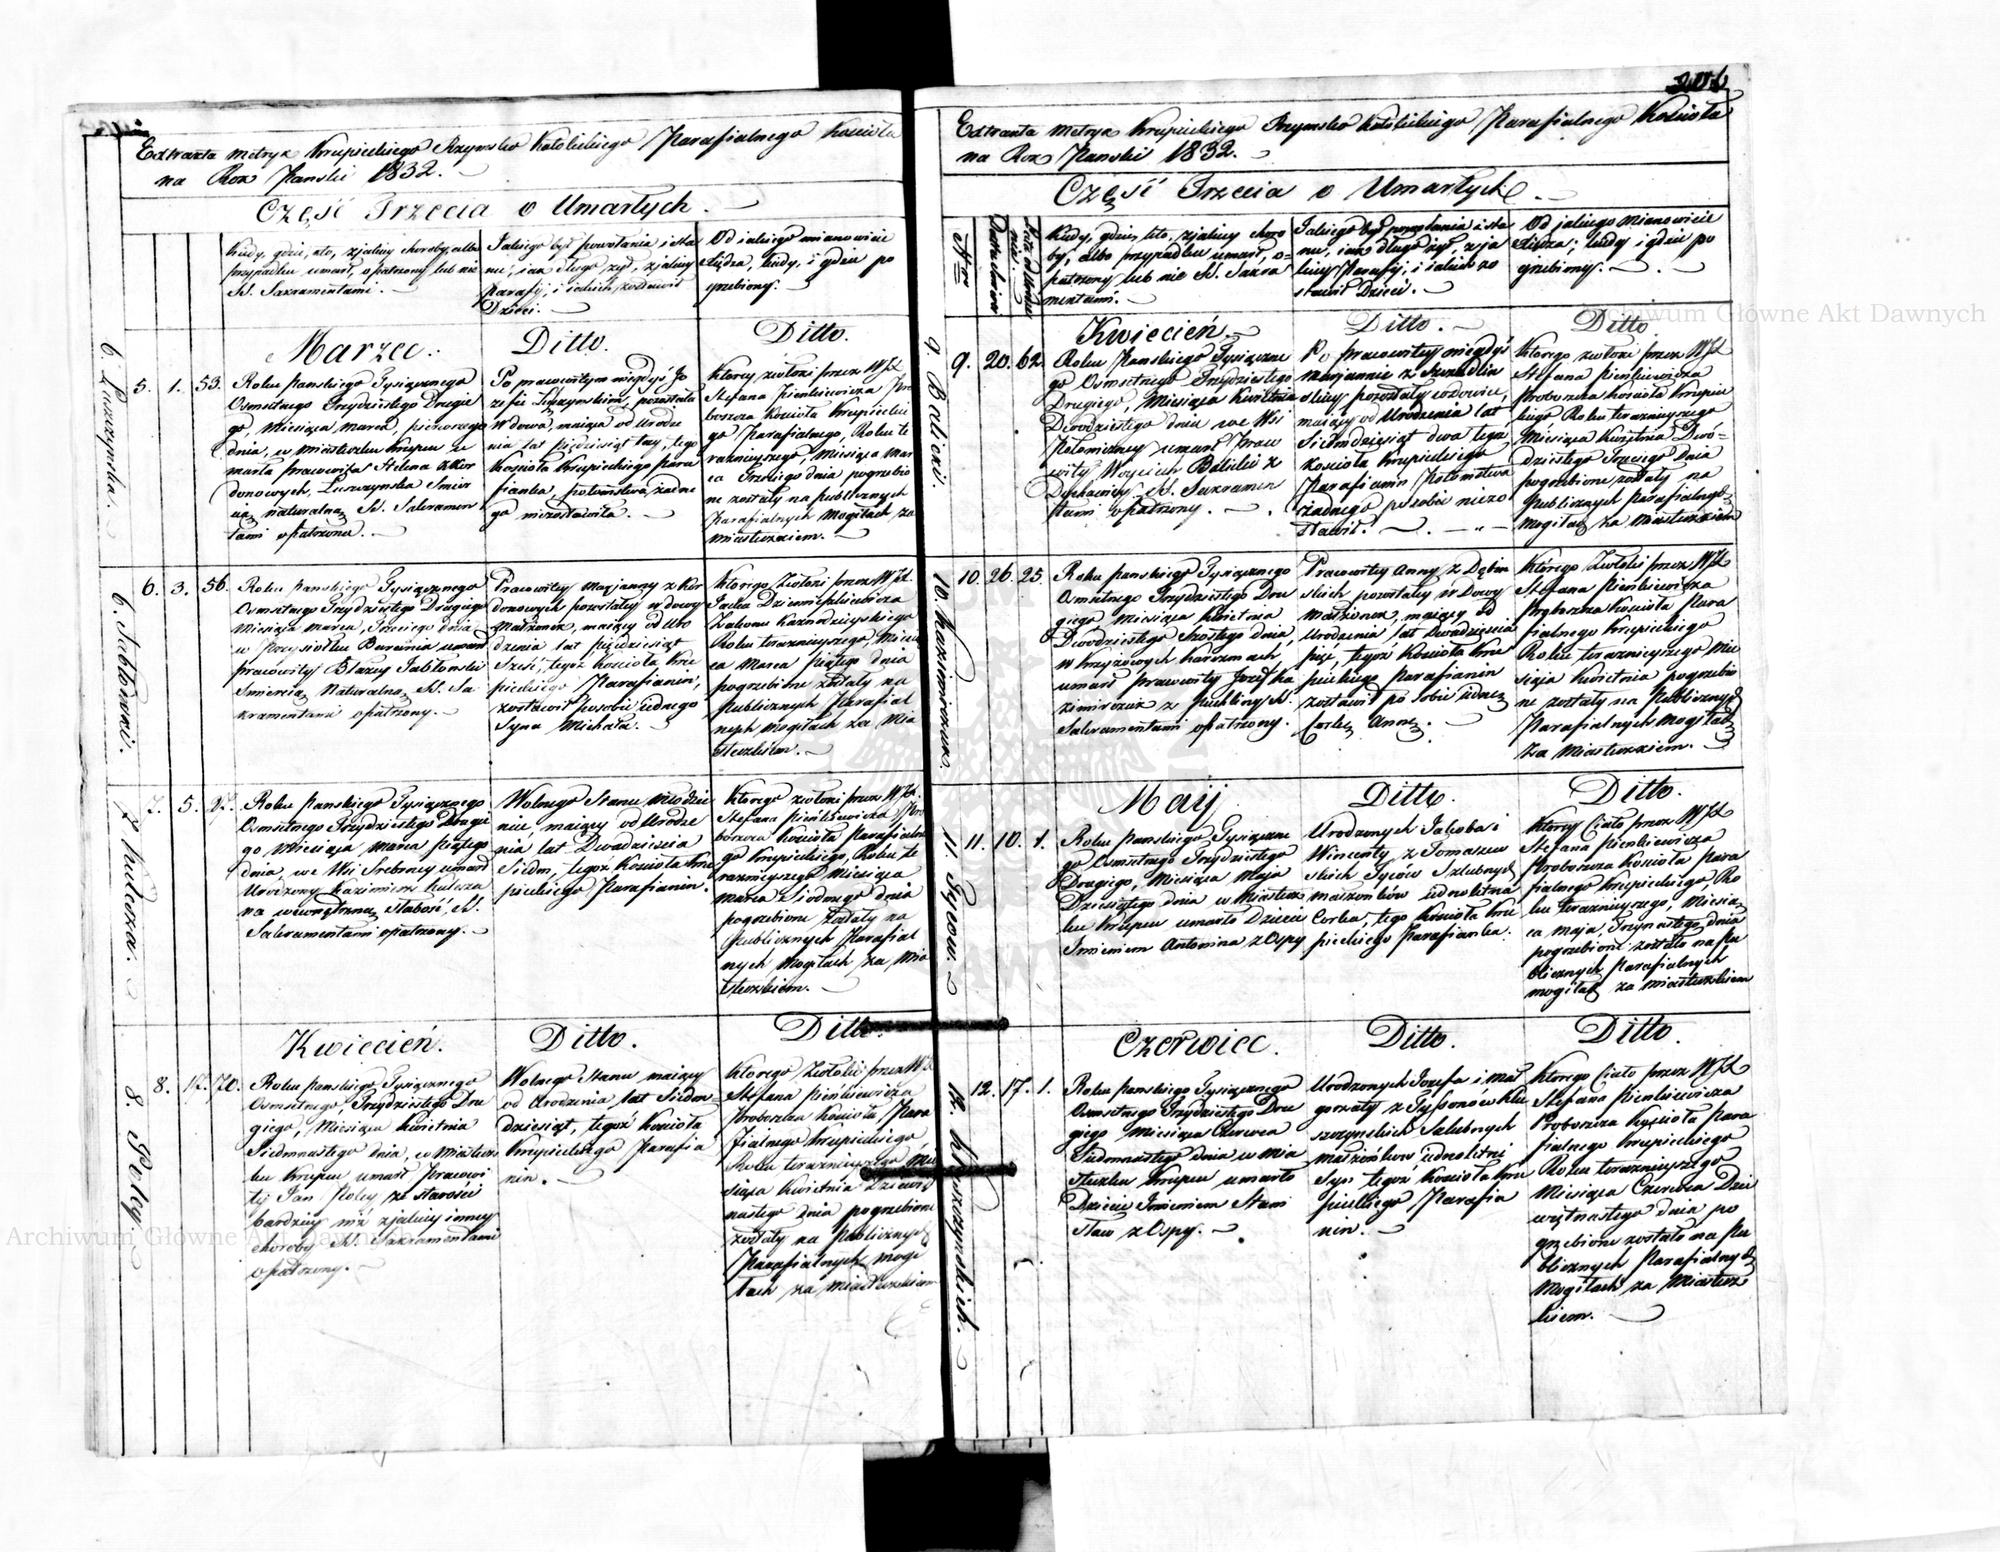 Extrakta Metryk Krupieckiego Rzymsko Katolickiego Parafialnego Kościoła
na Rok Panski 1832.
Część Trzecia o Umarłych.
Kiedy, gdzie, kto, zjakiey choroby albo
przypadku umarł, opatrzony lub nie
SS. Sakramentami.
Jakiego był powołania i sta
nu, iak długo żył, zjakiey
parafij, i iakich zostawił
Dzieci.
Od iakiego mianowicie
Xiędza, kiedy, i gdzie po
grzebiony.
6. Luszczynska.
5. 1. 53.
Marzec.
Roku Panskiego Tysiącznego
Osmsetnego Trzydziestego Drugie
go, Miesiąca Marca, pierwszego
dnia, w miasteczku Krupcu u
marła pracowita Helena z Kor
donowych, Luszczynska Smier
cią naturalną SS. Sakramen
tami opatrzona.
Ditto.
Po pracowitym niegdyś Jo
zefie Luszczynskim, pozostała
Wdowa, maiąca od Urodze
nia lat pięcdziesiąt trzy, tego
Kościoła Krupieckiego Para
fianka, potomstwa żadne
go niezostawiła.
Ditto.
Ktorey zwłoki przez WJX.
Stefana Pienkiewicza Pro
boszcza Kościoła Krupieckie
go Parafialnego, Roku te
razniejszego Miesiąca Mar
ca Trzeciego dnia pogrzebio
ne zostały na publicznych
Parafialnych Mogiłach za
Miasteczkiem.
6. Jabłonski.
6. 3. 56.
Roku Panskiego Tysiącznego
Osmsetnego Trzydziestego Drugiego
Miesiąca Marca, Trzeciego dnia
w Przysiołku Burainia umarł
pracowity Błazey Jabłonski
Smiercią Naturalną, SS. Sa
kramentami opatrzony.
Pracowitey Maryanny z Kor
donowych pozostały wdowy
Małżonek, maiący od Uro
dzenia lat pięcdziesiąt
Szesć, tegoż Kościoła Kru
pieckiego Parafianin,
zostawił posobie iednego
Syna Michała.
Ktorego Zwłoki przez WJX.
Zakonu Kaznodzieyskiego
Roku teraznieyszego, Miesią
ca Marca piątego dnia
pogrzebione zostały na
Publicznych Parafial
nych Mogiłach za Mia
steczkiem.
7. Kulesza.
7. 5. 27.
Roku Panskiego Tysiącznego
Osmsetnego Trzydziestego Drugie
go Miesiąca Marca piątego
dnia, we Wsi Srebrney umarł
Urodzony Kazimierz Kulesza
na wewnętrzną słabość, SS.
Sakramentami opatrzony.
Wolnego Stanu Młodzie
niec, maiący od Urodze
nia lat Dwadzieścia
Siedm, tegoż Kościoła Kru
pieckiego Parafianin.
Ktorego zwłoki przez WJX.
Stefana Pienkiewicza Pro
boszcza Kościoła Parafialne
go Krupieckiego, Roku te
razniejszego Miesiąca
Marca Siodmego dnia
pogrzebione zostały na
Publicznych Parafial
nych Mogiłach za Mia
steczkiem.
8. Poley.
8. 17. 70.
Kwiecień.
Roku Panskiego Tysiącznego
Osmsetnego, Trzydziestego Dru
giego, Miesiąca Kwietnia
Siedmnastego dnia, w Miastecz
ku Krupcu umarł Pracowi
ty Jan Poley ze starości
bardziey niż zjakiey inney
choroby SS. Sakramentami
opatrzony.
Ditto.
Wolnego Stanu maiący
od Urodzenia lat Siedm
dziesiąt, tegoż Kościoła
Krupieckiego Parafia
nin.
Ditto.
Ktorego Zwłoki przez WJX
Stefana Pienkiewicza
Proboszcza Kościoła Para
fialnego Krupieckiego
Roku teraznieyszego Mie
siąca Kwietnia Dziewięt
nastego dnia pogrzebione
zostały na Publicznych
Parafialnych Mogi
łach za Miasteczkiem
Extrakta Metryk Krupieckiego Rzymsko Katolickiego Parafialnego Kościoła
na Rok Panski 1832.
Część Trzecia o Umarłych.
Kiedy, gdzie, kto, zjakiey choro
by, albo przypadku umarł, o-
patrzony lub nie SS. Sakra
mentami.
Jakiego był powołania i sta
nu, iak długo żył, z ja
kiey Parafij, i iakich zo
stawił Dzieci.
Od jakiego mianowicie
Xiędza, kiedy i gdzie po
grzebiony.
9. Bilicki.
9. 20. 62.
Kwiecień.
Roku Panskiego Tysiączne
go Osmsetnego Trzydziestego
Drugiego, Miesiąca Kwietnia
Dwódziestego dnia we Wsi
umarł Praco
wity Woyciech Bilicki z
SS. Sakramen
tami opatrzony.
Ditto.
Po pracowitey niegdyś
Maryannie z
pozostały wdowiec,
maiący od Urodzenia lat
Siedmdziesiąt dwa tegoż
Kościoła Krupieckiego
Parafianin Potomstwa
żadnego po sobie niezo
stawił.
Ditto.
Ktorego zwłoki przez WJX
Stefana Pienkiewicza
Proboszcza Kościoła Krupiec
kiego Roku teraznieyszego
Miesiąca Kwietnia Dwó-
dziestego Trzeciego dnia
pogrzebione zostały na
Publicznych Parafialnych
Mogiłach za Miasteczkiem
10. Kazimirczuk.
10. 26. 25.
Roku Panskiego Tysiącznego
Osmsetnego Trzydziestego Dru
giego, Miesiąca Kwietnia
Dwódziestego Szostego dnia,
w Krzyżowych Karczmach
umarł pracowity Jozef Ka
zimirczuk z Puchliny SS.
Sakramentami opatrzony.
Pracowitey Anny z Dębin
skich pozostałey Wdowy
Małżonek, maiący od
Urodzenia lat Dwadzieścia
pięć, tegoż Kościoła Kru
pieckiego Parafianin
zostawił po sobie iedną
Corkę Annę.
Ktorego Zwłoki przez WJX
Stefana Pienkiewicza
Proboszcza Kościoła Para
fialnego Krupieckiego
Roku teraznieyszego Mie
siąca Kwietnia pogrzebio
ne zostały na Publicznych
Parafialnych Mogiłach
za Miasteczkiem.
11. Tycow.
11. 10. 1.
Maij
Roku Panskiego Tysiączne
go Osmsetnego Trzydziestego
Drugiego, Miesiąca Maja
Dziesiątego dnia w Miastecz
ku Krupcu umarło Dziecie
Imieniem Antonina z Ospy
Ditto.
Urodzonych Jakoba i
Wincenty z Tomaszew
skich Tyców Szlubnych
małżonków iednoletnia
Corka, tego Kościoła Kru
pieckiego Parafianka.
Ditto.
Ktorey Ciało przez WJX
Stefana Pienkiewicza
Proboszcza Kościoła Para
fialnego Krupieckiego, Ro
ku teraznieyszego, Miesią
ca Maja, Trzynastego dnia
pogrzebione zostało na Pu
blicznych Parafialnych
mogiłach za Miasteczkiem
12. Kluszczynskich.
12. 17. 1.
Czerwiec.
Roku Panskiego Tysiącznego
Osmsetnego Trzydziestego Dru
giego Miesiąca Czerwca
Siedmnastego dnia w Mia
steczku Krupcu umarło
Dziecie Imieniem Stani
sław z Ospy.
Ditto.
Urodzonych Jozefa i Mał
gorzaty z Tyssonów Klu
szczynskich Szlubnych
małżonków iednoletni
Syn tegoż Kościoła Kru
pieckiego Parafia
nin.
Ditto.
Ktorego Ciało przez WJX
Stefana Pienkiewicza
Proboszcza Kościoła Para
fialnego Krupieckiego
Roku teraznieyszego
Miesiąca Czerwca Dzie
więtnastego dnia po
grzebione zostało na Pu
blicznych Parafialnych
Mogiłach za Miastecz
kiem.
Archiwum Główne Akt Dawnych
Archiwum Główne Akt Dawnych